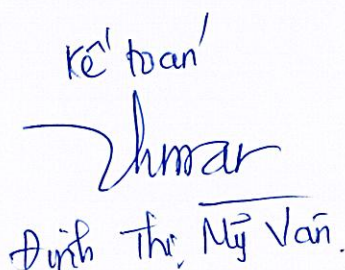 Kế toán
Đinh Thị Mỹ Vân.